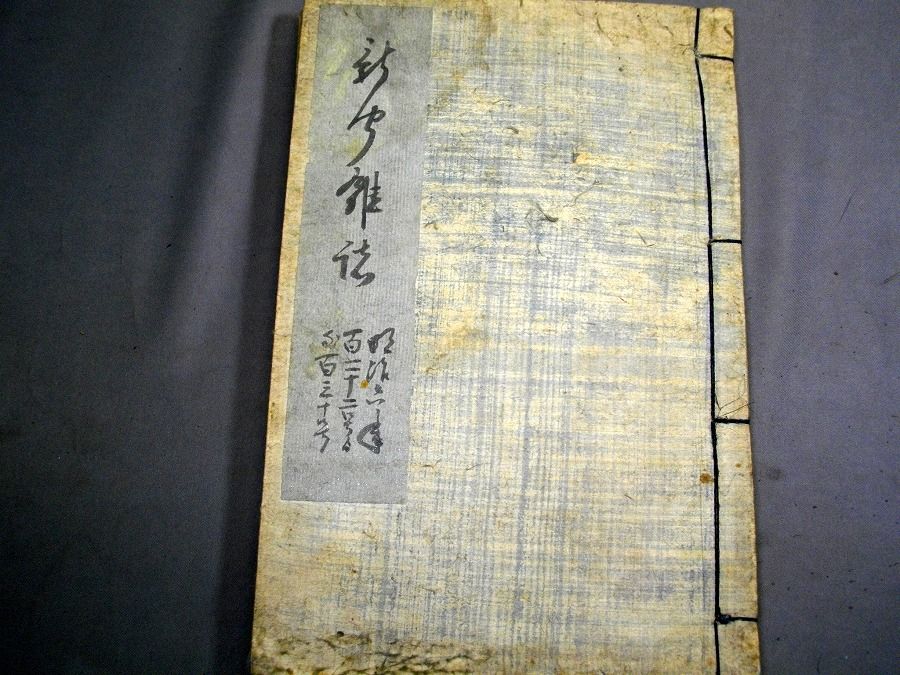 新聞雑誌
明治六年
百二十二号ゟ
百三十号